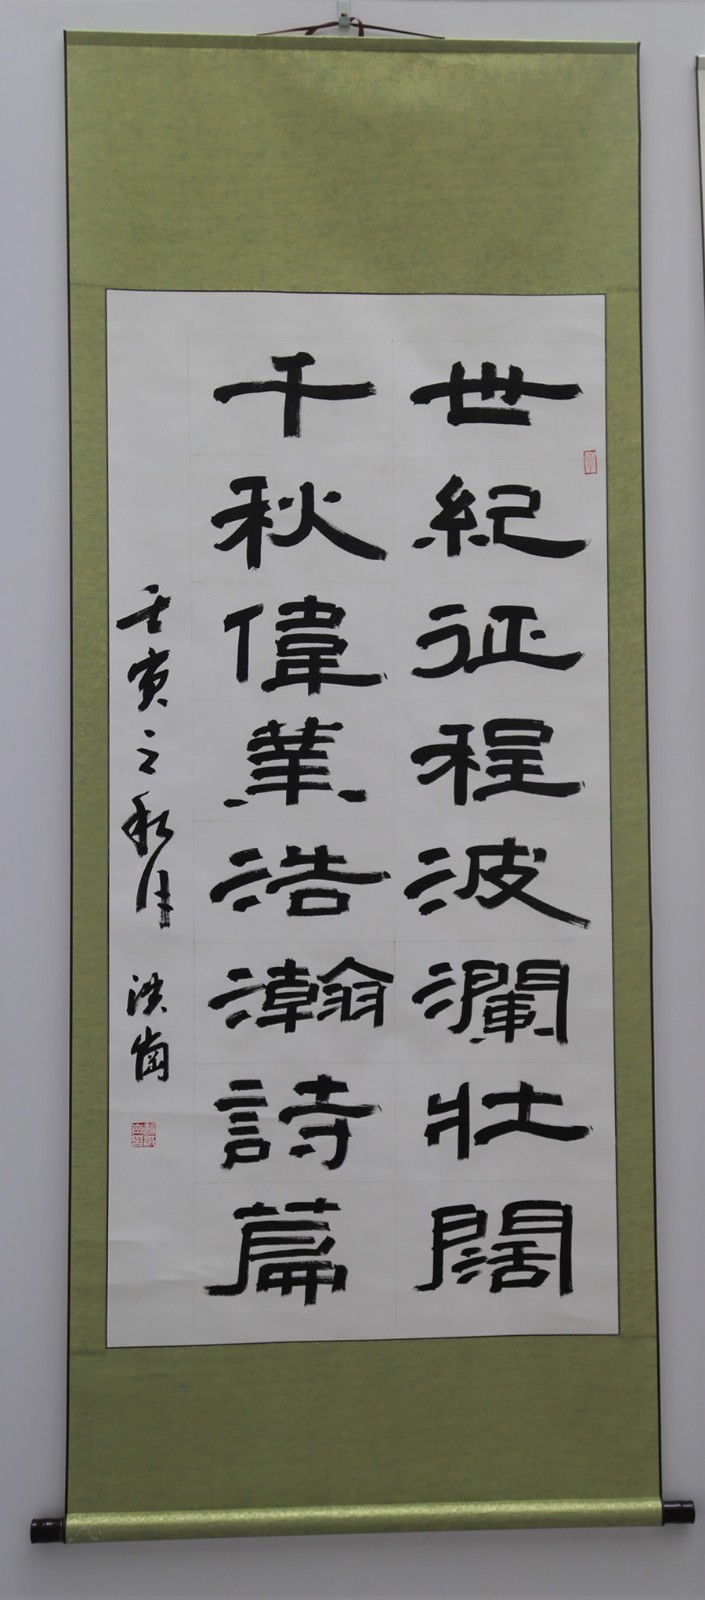 世紀征程波瀾壮闊
千秋偉業浩瀚詩篇
壬寅之秋月 洪崗